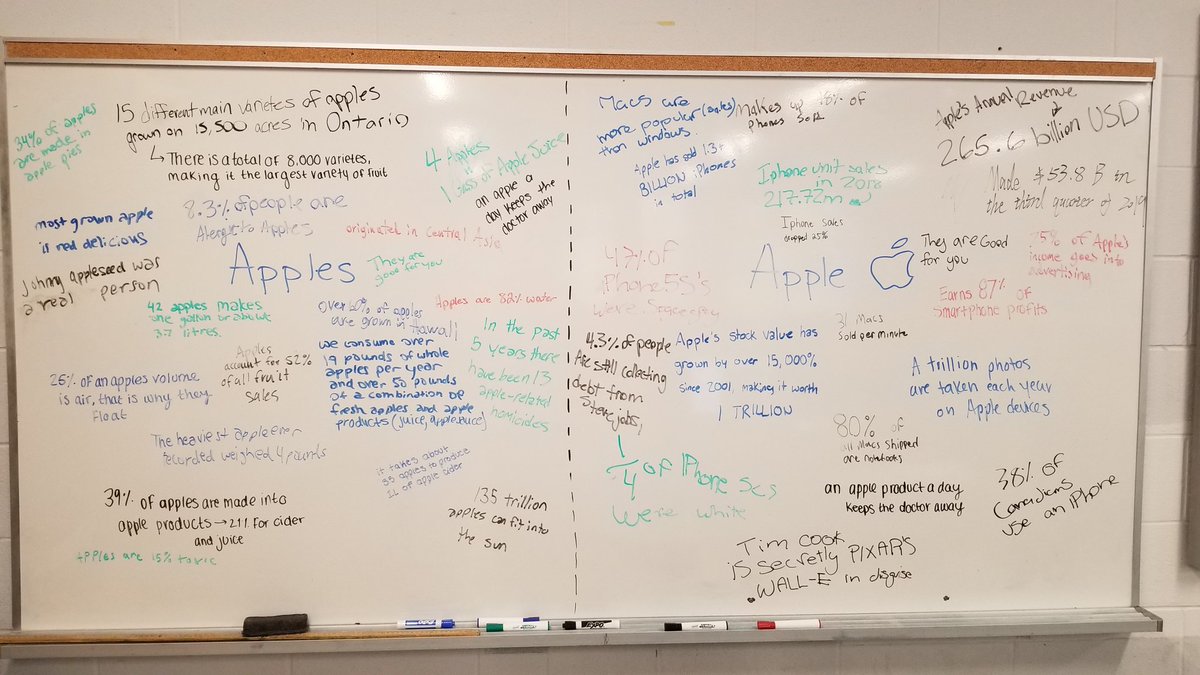 34% of apples
are made in
apple pies
15 different main varietes of apples
grown on 15,500 acres in Ontario
↳ There is a total of 8,000 varietes,
making it the largest variety of fruit
4 Apples
1 glass of Apple Juice
an apple a
day keeps the
doctor away
most grown apple
is red delicious
8.3% of people are
Alergic to Apples
originated in Central Asia
Johnny appleseed was
a real person
Apples
They are
good for you
42 apples makes
one gallon or about
3.7 litres.
Over 40% of apples
are grown in Hawaii
Apples are 82% water
Apples
account for 52%
of all fruit
sales
we consume over
19 pounds of whole
apples per year
and over 50 pounds
of a combination of
fresh apples and apple
products (juice, applesauce)
In the past
5 years there
have been 13
apple-related
homicides
25% of an apples volume
is air, that is why they
float
The heaviest apple ever
recorded weighed 4 pounds
it takes about
35 apples to produce
1L of apple cider
39% of apples are made into
apple products → 21% for cider
and juice
Apples are 15% toxic
135 trillion
apples can fit into
the sun
Macs are
more popular (sales)
than windows
makes up 18% of
phones sold
Apple's Annual Revenue
265.6 billion USD
Apple has sold 1.3+
BILLION iPhones
in total
Iphone unit sales
in 2018
217.72m
Made $53.8 B in
the third quarter of 2019
Iphone sales
dropped 25%
47% of
iPhone 5s's
were Spacegrey
Apple
They are Good
for you
75% of Apple's
income goes into
advertising
Earns 87% of
Smartphone profits
4.3% of people
Are still collecting
debt from
Steve jobs,
Apple's stock value has
grown by over 15,000%
since 2001, making it worth
1 TRILLION
31 Macs
sold per minute
A trillion photos
are taken each year
on Apple devices
80% of
all Macs shipped
are notebooks
1/4 of IPhone 5cs
were white
an apple product a day
keeps the doctor away
38% of
Canadians
use an iPhone
Tim Cook
is secretly PIXAR's
WALL-E in disguise
EXPO